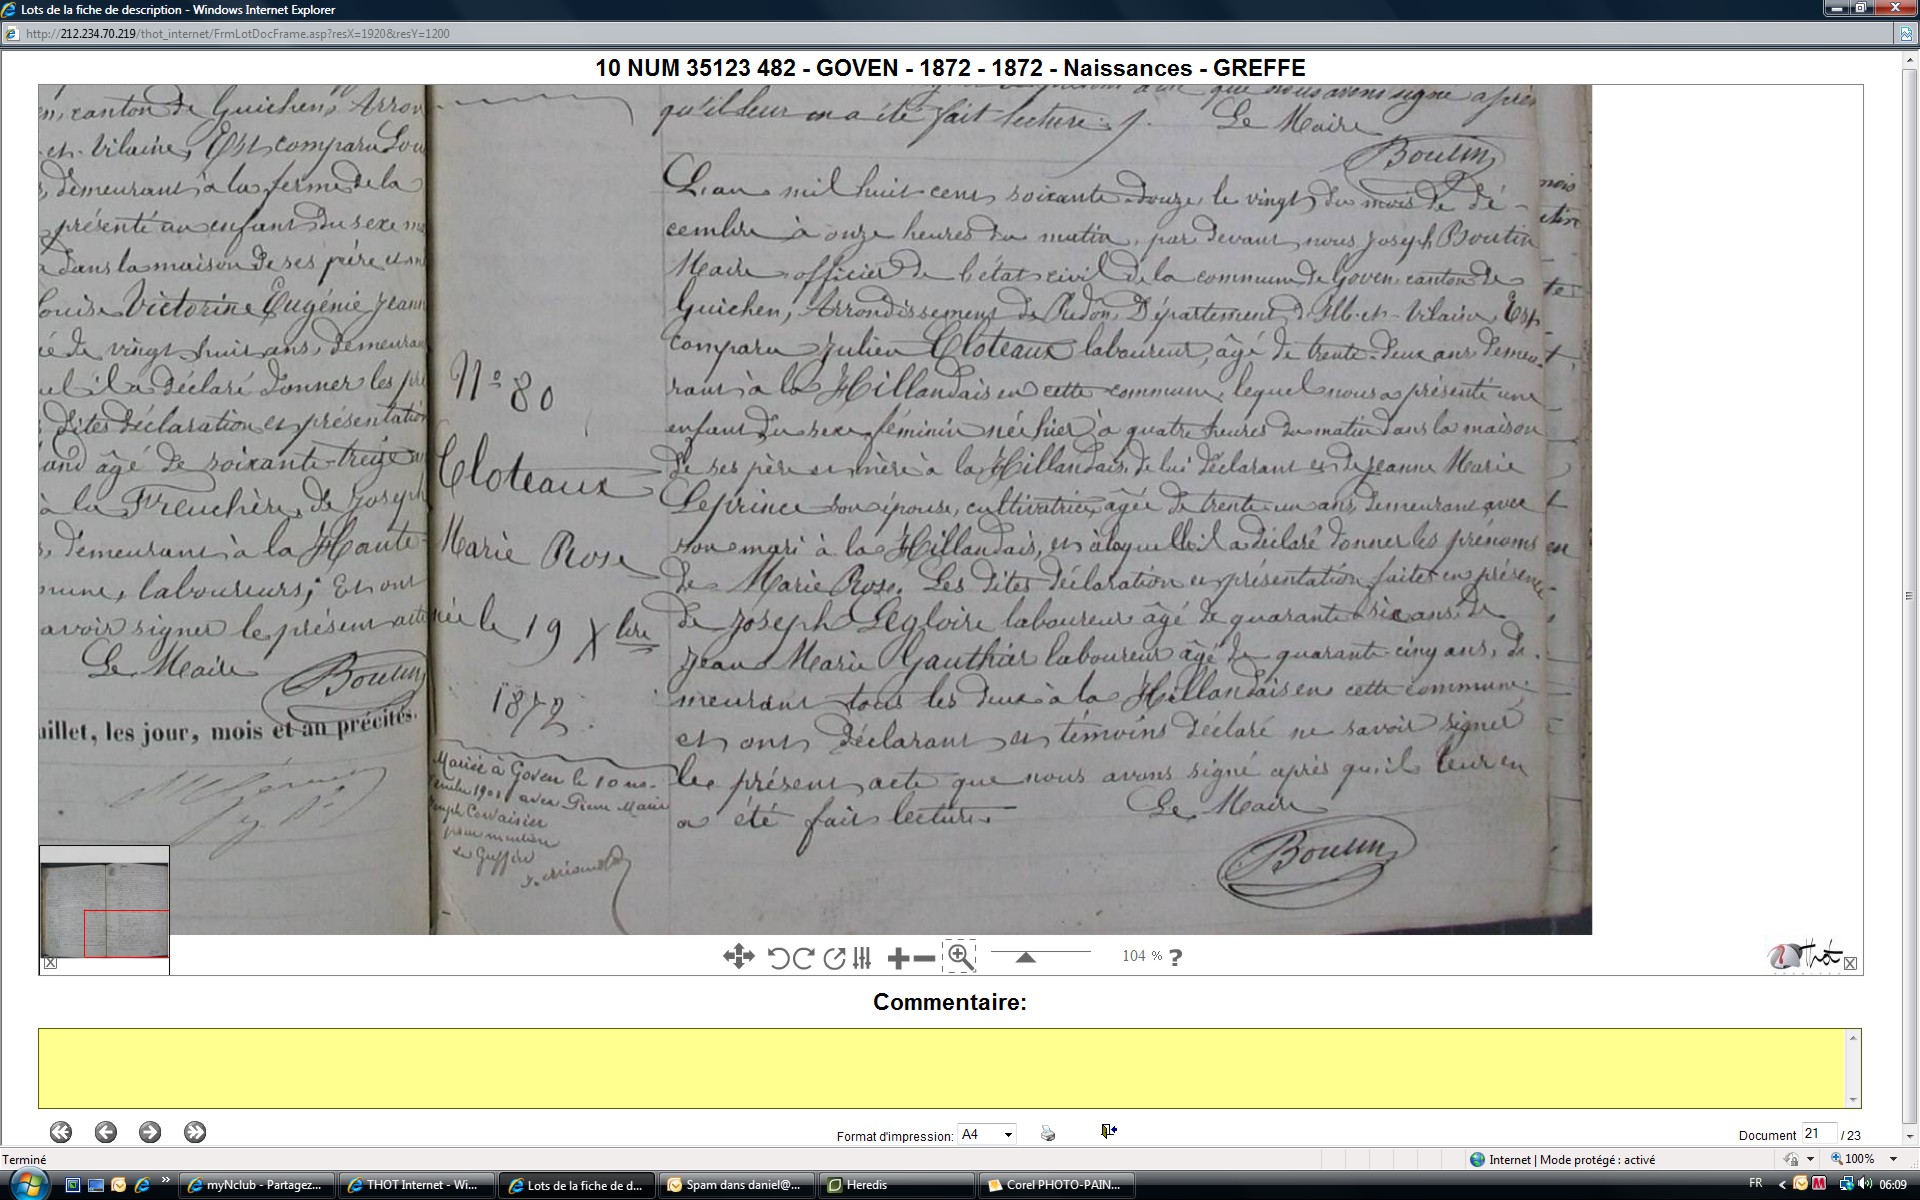 Lots de la fiche de description - Windows Internet Explorer
http://212.234.70.219/thot_internet/FrmLotDocFrame.asp?resX=1920&resY=1200
10 NUM 35123 482 - GOVEN - 1872 - 1872 - Naissances - GREFFE
canton de Guichen, Arron
et-Vilaine, Est comparu Lou
demeurant à la ferme de la
présenté un enfant du sexe m
dans la maison de ses père et
Victorine Eugénie Jeann
de vingt huit ans, demeuran
il a déclaré donner les pré
dites déclaration et présentation
âgé de soixante-treize
à la Freuchère, de Joseph
demeurant à la Haute
laboureurs; Et ont
avoir signer le présent acte
Le Maire
Boutin
uillet, les jour, mois et an précités.
N° 80
Cloteaux
Marie Rose
née le 19 Xbre
1872
Mariée à Goven le 10 no-
avec Pierre Marie
pour mention
Le Greffier
que nous avons signé après
qu'il leur en a été fait lecture.
Le Maire
Boutin
L'an mil huit cent soixante-douze, le vingt du mois de dé-
cembre à onze heures du matin, par devant nous Joseph Boutin
Maire officier de l'état civil de la commune de Goven, canton de
Guichen, Arrondissement de Redon, Département d'Ille-et-Vilaine, Est
comparu Julien Cloteaux laboureur, âgé de trente-deux ans, demeu-
rant à la Hillandais en cette commune, lequel nous a présenté une
enfant du sexe féminin née hier à quatre heures du matin dans la maison
de ses père et mère à la Hillandais, de lui déclarant et de Jeanne Marie
Leprince son épouse, cultivatrice, agée de trente-un ans, demeurant avec
son mari à la Hillandais, et à laquelle il a déclaré donner les prénoms
de Marie Rose. Les dites déclaration et présentation faites en présence
de Joseph Legloire laboureur âgé de quarante six ans, de
Jean Marie Gauthier laboureur âgé de quarante-cinq ans, de-
meurant tous les deux à la Hillandais en cette commune.
et ont déclarant et témoins déclaré ne savoir signer
le présent acte que nous avons signé après qu'il leur en
a été fait lecture.
Le Maire
Boutin
104 % ?
Thot
Commentaire:
Format d'impression: A4
Document 21 / 23
Terminé
Internet | Mode protégé : activé
100%
myNclub - Partagez...
THOT Internet - Wi...
Lots de la fiche de d...
Spam dans daniel@...
Heredis
Corel PHOTO-PAIN...
FR
06:09